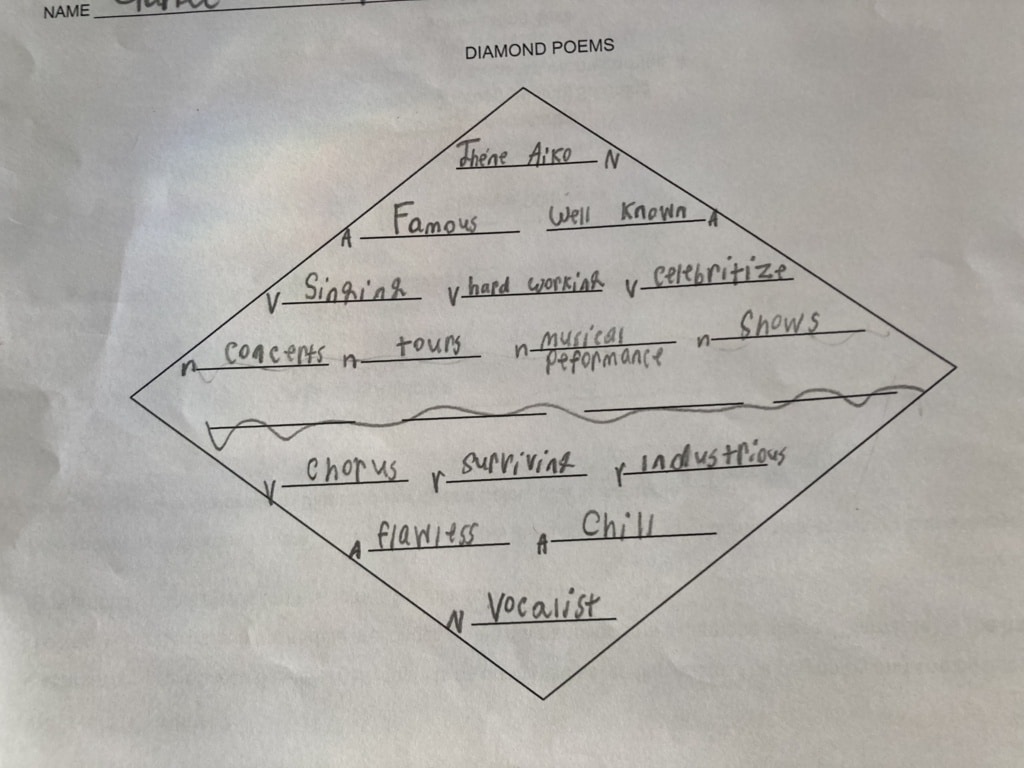 NAME
DIAMOND POEMS
Jhéne Aiko N
A Famous Well Known A
V Singing V hard working V celebritize
n concerts n tours n musical peformance n Shows
V Chorus V surriving V industrious
A flawless A Chill
N Vocalist